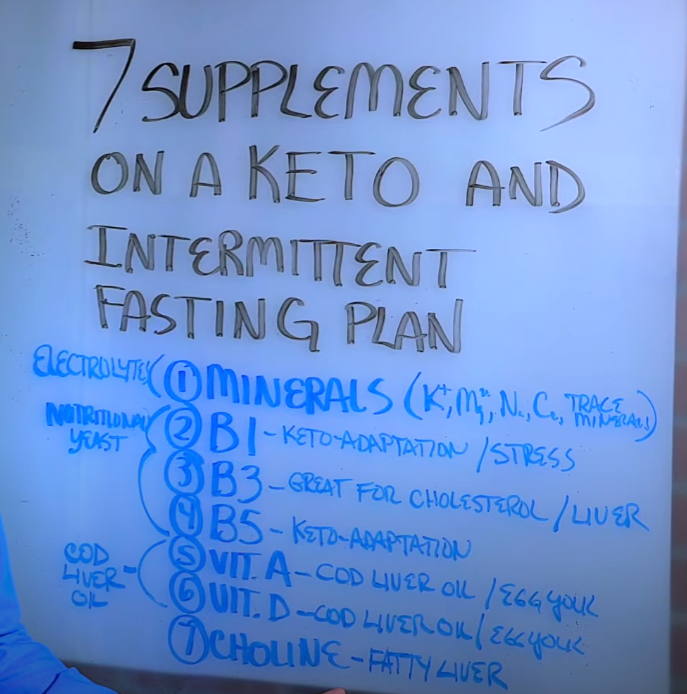 7 SUPPLEMENTS
ON A KETO AND
INTERMITTENT
FASTING PLAN
ELECTROLYTES ① MINERALS (K⁺, Mg²⁺, Na, Ca, TRACE MINERALS)
NUTRITIONAL YEAST ② B1 - KETO-ADAPTATION / STRESS
③ B3 - GREAT FOR CHOLESTEROL / LIVER
④ B5 - KETO-ADAPTATION
COD LIVER OIL - ⑤ VIT. A - COD LIVER OIL / EGG YOLK
⑥ VIT. D - COD LIVER OIL / EGG YOLK
⑦ CHOLINE - FATTY LIVER